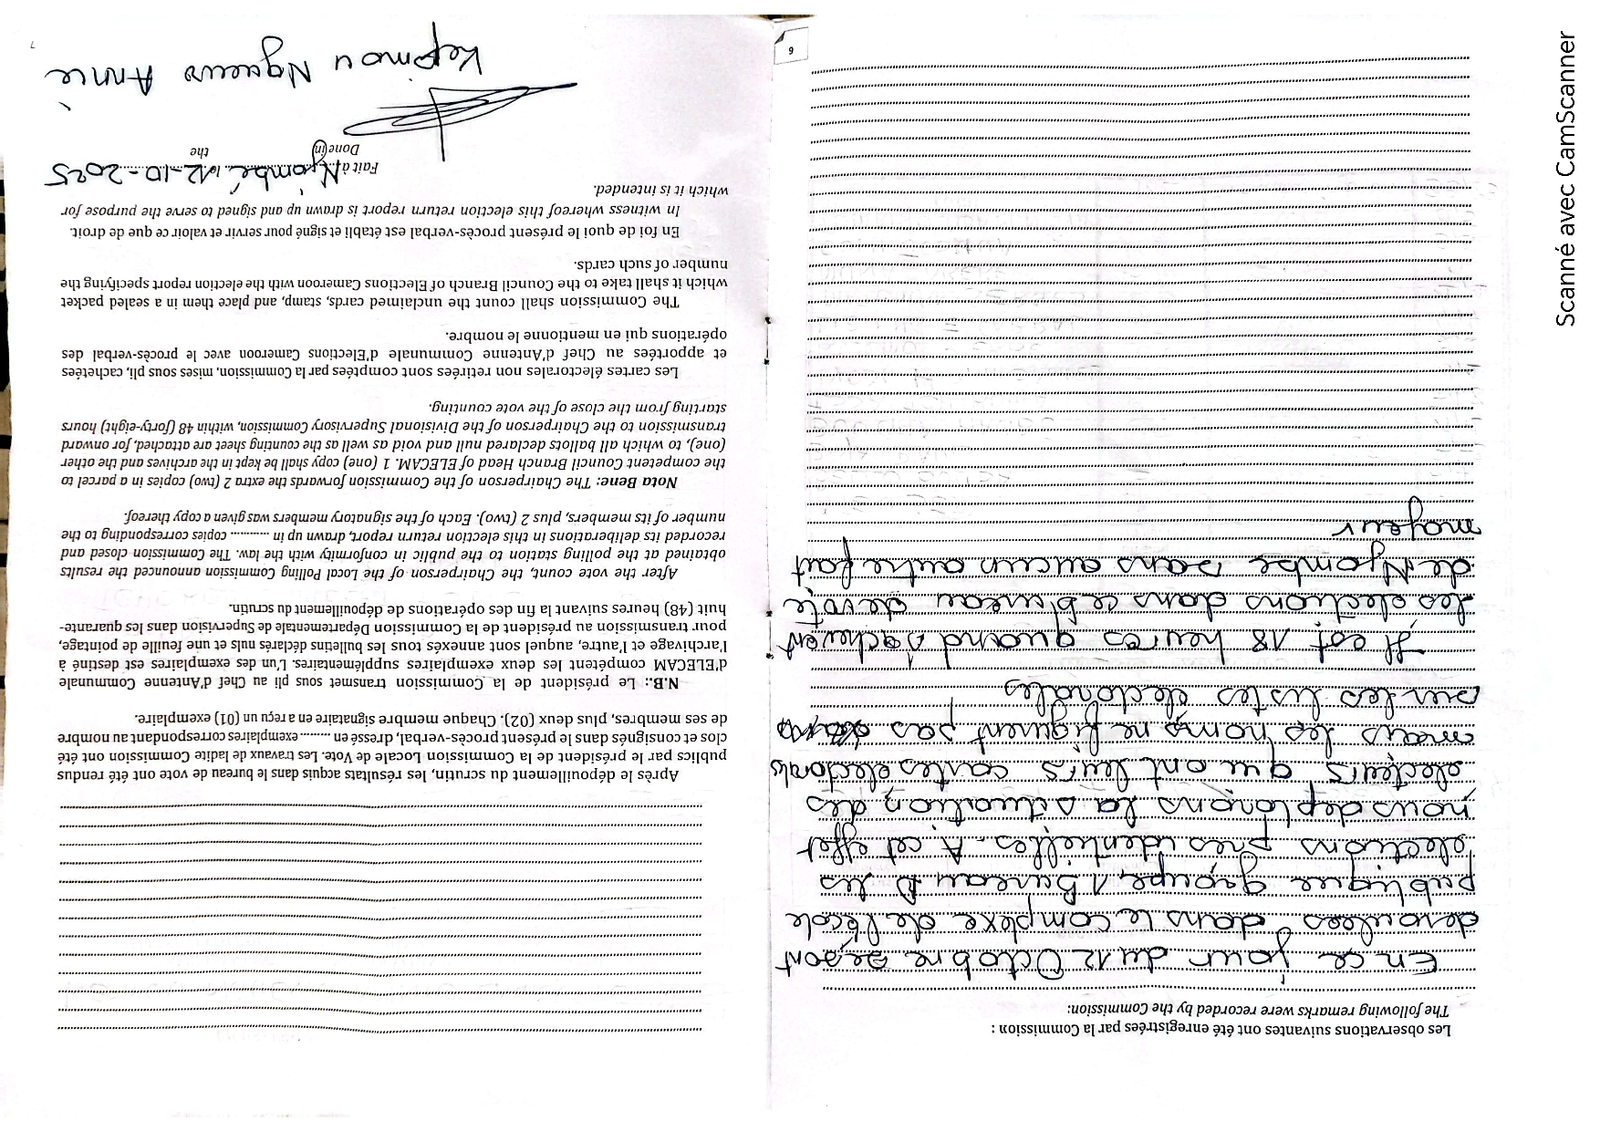 Les observations suivantes ont été enregistrées par la Commission :
The following remarks were recorded by the Commission:
En ce jour du 12 Octobre se sont
deroulées dans le complexe de l'école
publique groupe 1 Bureau D les
elections présidentielles. A cet effet
nous deplorons la situation des
electeurs qui ont leurs cartes electorales
mais les noms ne figurent pas
sur les listes electorales
Il est 18 heures quand s'achevent
les elections dans ce bureau de vote
de Njombe sans aucun autre fait
majeur
6
Après le dépouillement du scrutin, les résultats acquis dans le bureau de vote ont été rendus
publics par le président de la Commission Locale de Vote. Les travaux de ladite Commission ont été
clos et consignés dans le présent procès-verbal, dressé en ......... exemplaires correspondant au nombre
de ses membres, plus deux (02). Chaque membre signataire en a reçu un (01) exemplaire.
N.B.: Le président de la Commission transmet sous pli au Chef d'Antenne Communale
d'ELECAM compétent les deux exemplaires supplémentaires. L'un des exemplaires est destiné à
l'archivage et l'autre, auquel sont annexés tous les bulletins déclarés nuls et une feuille de pointage,
pour transmission au président de la Commission Départementale de Supervision dans les quarante-
huit (48) heures suivant la fin des opérations de dépouillement du scrutin.
After the vote count, the Chairperson of the Local Polling Commission announced the results
obtained at the polling station to the public in conformity with the law. The Commission closed and
recorded its deliberations in this election return report, drawn up in ........... copies corresponding to the
number of its members, plus 2 (two). Each of the signatory members was given a copy thereof.
Nota Bene: The Chairperson of the Commission forwards the extra 2 (two) copies in a parcel to
the competent Council Branch Head of ELECAM. 1 (one) copy shall be kept in the archives and the other
(one), to which all ballots declared null and void as well as the counting sheet are attached, for onward
transmission to the Chairperson of the Divisional Supervisory Commission, within 48 (forty-eight) hours
starting from the close of the vote counting.
Les cartes électorales non retirées sont comptées par la Commission, mises sous pli, cachetées
et apportées au Chef d'Antenne Communale d'Elections Cameroon avec le procès-verbal des
opérations qui en mentionne le nombre.
The Commission shall count the unclaimed cards, stamp, and place them in a sealed packet
which it shall take to the Council Branch of Elections Cameroon with the election report specifying the
number of such cards.
En foi de quoi le présent procès-verbal est établi et signé pour servir et valoir ce que de droit.
In witness whereof this election return report is drawn up and signed to serve the purpose for
which it is intended.
Fait à Njombé, le 12-10-2025
Done in the
Annie
7
Scanné avec CamScanner